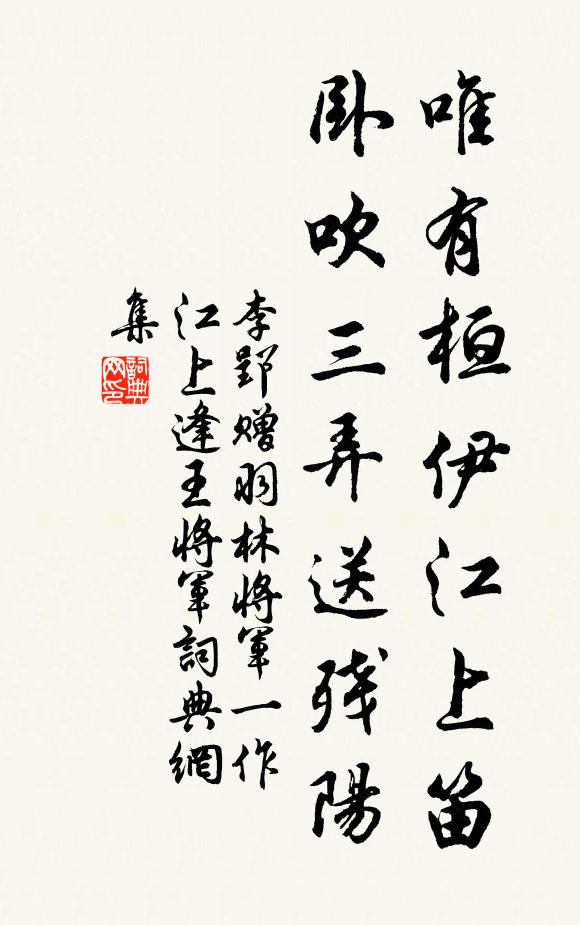 唯有桓伊江上笛
卧吹三弄送残陽
李郢赠羽林將軍一作
江上逢王將軍詞典網
集
詞典
网印